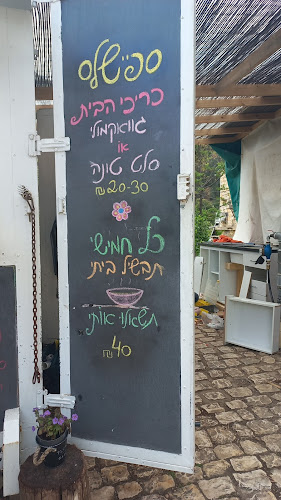 ספיישלס
כריכי הבית
גוואקמולי
או
סלט טונה
20-30 ₪
כל חמישי
תבשיל ביתי
תשאלו אותי
40 ₪